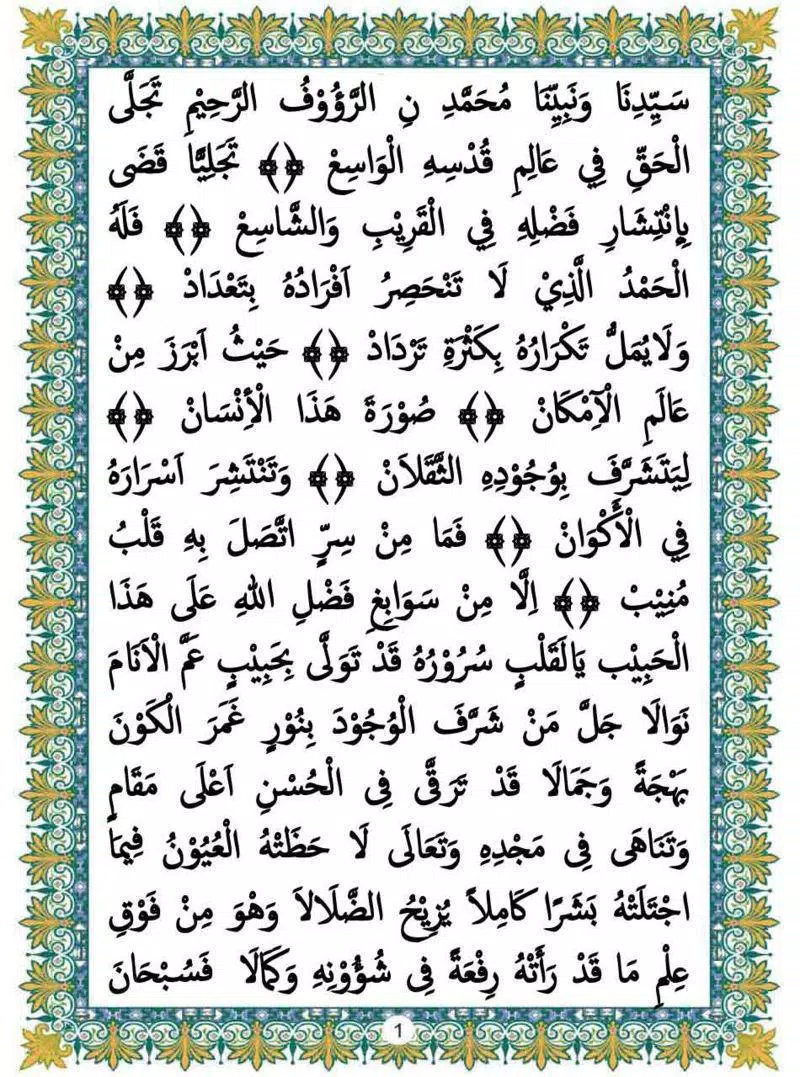 سَيِّدِنَا وَنَبِيِّنَا مُحَمَّدِ نِ الرَّؤُوْفُ الرَّحِيْمِ تَجَلَّى
الْحَقِّ فِي عَالِمِ قُدْسِهِ الْوَاسِعْ ﴿﴾ تَجَلِيًّا قَضَى
بِإِنْتِشَارِ فَضْلِهِ فِي الْقَرِيْبِ وَالشَّاسِعْ ﴿﴾ فَلَهُ
الْحَمْدُ الَّذِيْ لَا تَنْحَصِرُ اَفْرَادُهُ بِتَعْدَادْ ﴿﴾
وَلَايُمَلُّ تَكْرَارُهُ بِكَثْرَةِ تَرْدَادْ ﴿﴾ حَيْثُ اَبْرَزَ مِنْ
عَالَمِ الْاِمْكَانْ ﴿﴾ صُوْرَةَ هَذَا الْأِنْسَانْ ﴿﴾
لِيَتَشَرَّفَ بِوُجُوْدِهِ الثَّقَلَانْ ﴿﴾ وَتَنْتَشِرَ اَسْرَارَهُ
فِي الْأَكْوَانْ ﴿﴾ فَمَا مِنْ سِرٍّ اتَّصَلَ بِهِ قَلْبُ
مُنِيْبْ ﴿﴾ اِلَّا مِنْ سَوَابِغِ فَضْلِ اللهِ عَلَى هَذَا
الْحَبِيْب يَالَقَلْبٍ سُرُوْرُهُ قَدْ تَوَلَّى بِحَبِيْبٍ عَمَّ الْاَنَامَ
نَوَالَا جَلَّ مَنْ شَرَّفَ الْوُجُوْدَ بِنُوْرٍ غَمَرَ الْكَوْنَ
بَهْجَةً وَجَمَالَا قَدْ تَرَقَّى فِى الْحُسْنِ اَعْلَى مَقَامٍ
وَتَنَاهَى فِى مَجْدِهِ وَتَعَالَى لَا حَظَتْهُ الْعُيُوْنُ فِيمَا
اجْتَلَتْهُ بَشَرًا كَامِلاً يُزِيْحُ الضَّلَالاَ وَهْوَ مِنْ فَوْقِ
عِلْمِ مَا قَدْ رَأَتْهُ رِفْعَةً فِى شُؤُوْنِهِ وَكَمَالَا فَسُبْحَانَ
1